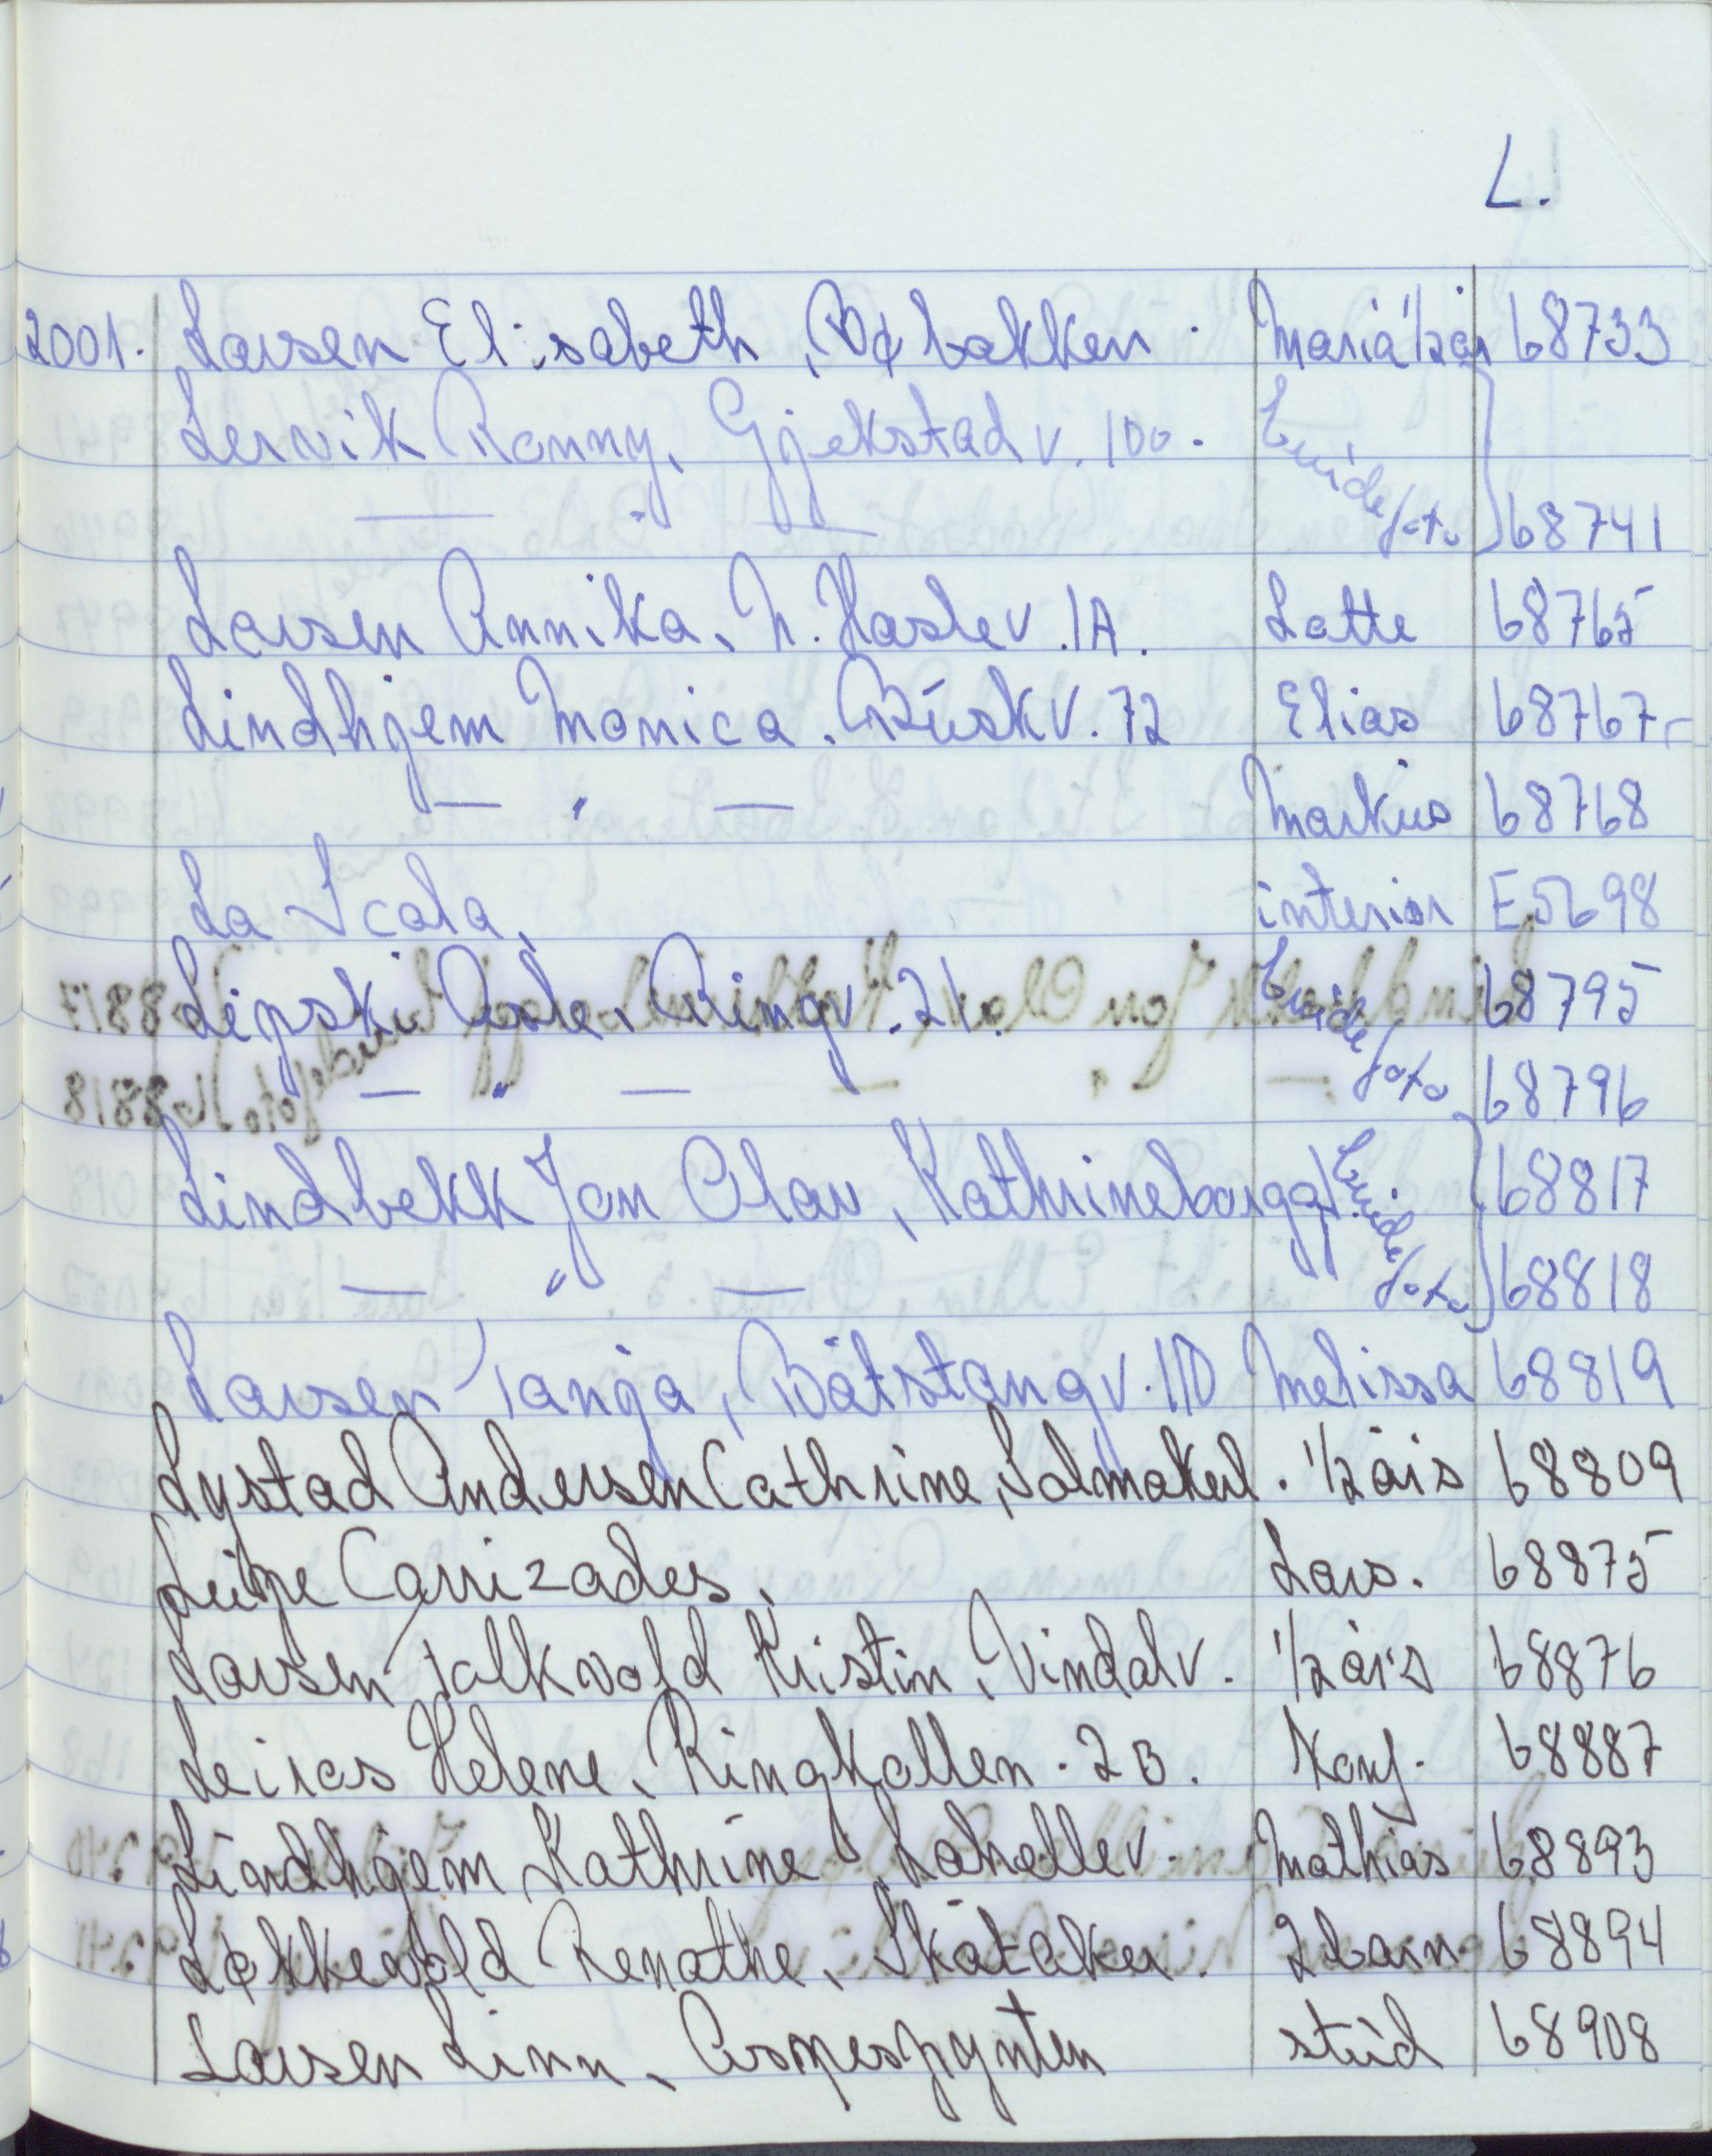 L.
2001. Larsen Elisabeth, Bøbakken. Maria 1/2 år 68733
Lervik Ronny, Gjekstadv. 100. Brudefoto
— " — 68741
Larsen Annika, N. Haslev. 1A. Lotte 68765
Lindhjem Monica. Buskv. 72 Elias 68767-
— " — Markus 68768
La Scala, interiør E5698
Lipski Asle, Ringv. 21. Brudefoto 68795
— " — 68796
Lindbekk Jan Olav, Kathrineborgg Brudefoto 68817
— " — 68818
Larsen Tanja, Båtstangv. 11D Melissa 68819
Lystad Andersen Cathrine, Solmåkerl. 1/2 års 68809
Carrizades. Lars. 68875
Larsen Falkvold Kristin, Vindalv. 1/2 års 68876
Leiros Helene, Ringkollen. 2B. Konf. 68887
Lindhjem Kathrine, Lahellev. Mathias 68893
Løkkevold Renathe, Skåtåker. 2 barn 68894
Larsen Linn, stud 68908